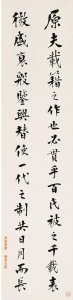 原夫載籍之作也必貫乎百氏被之千載表
徵盛衰殷鑒興替使一代之制共日月而長